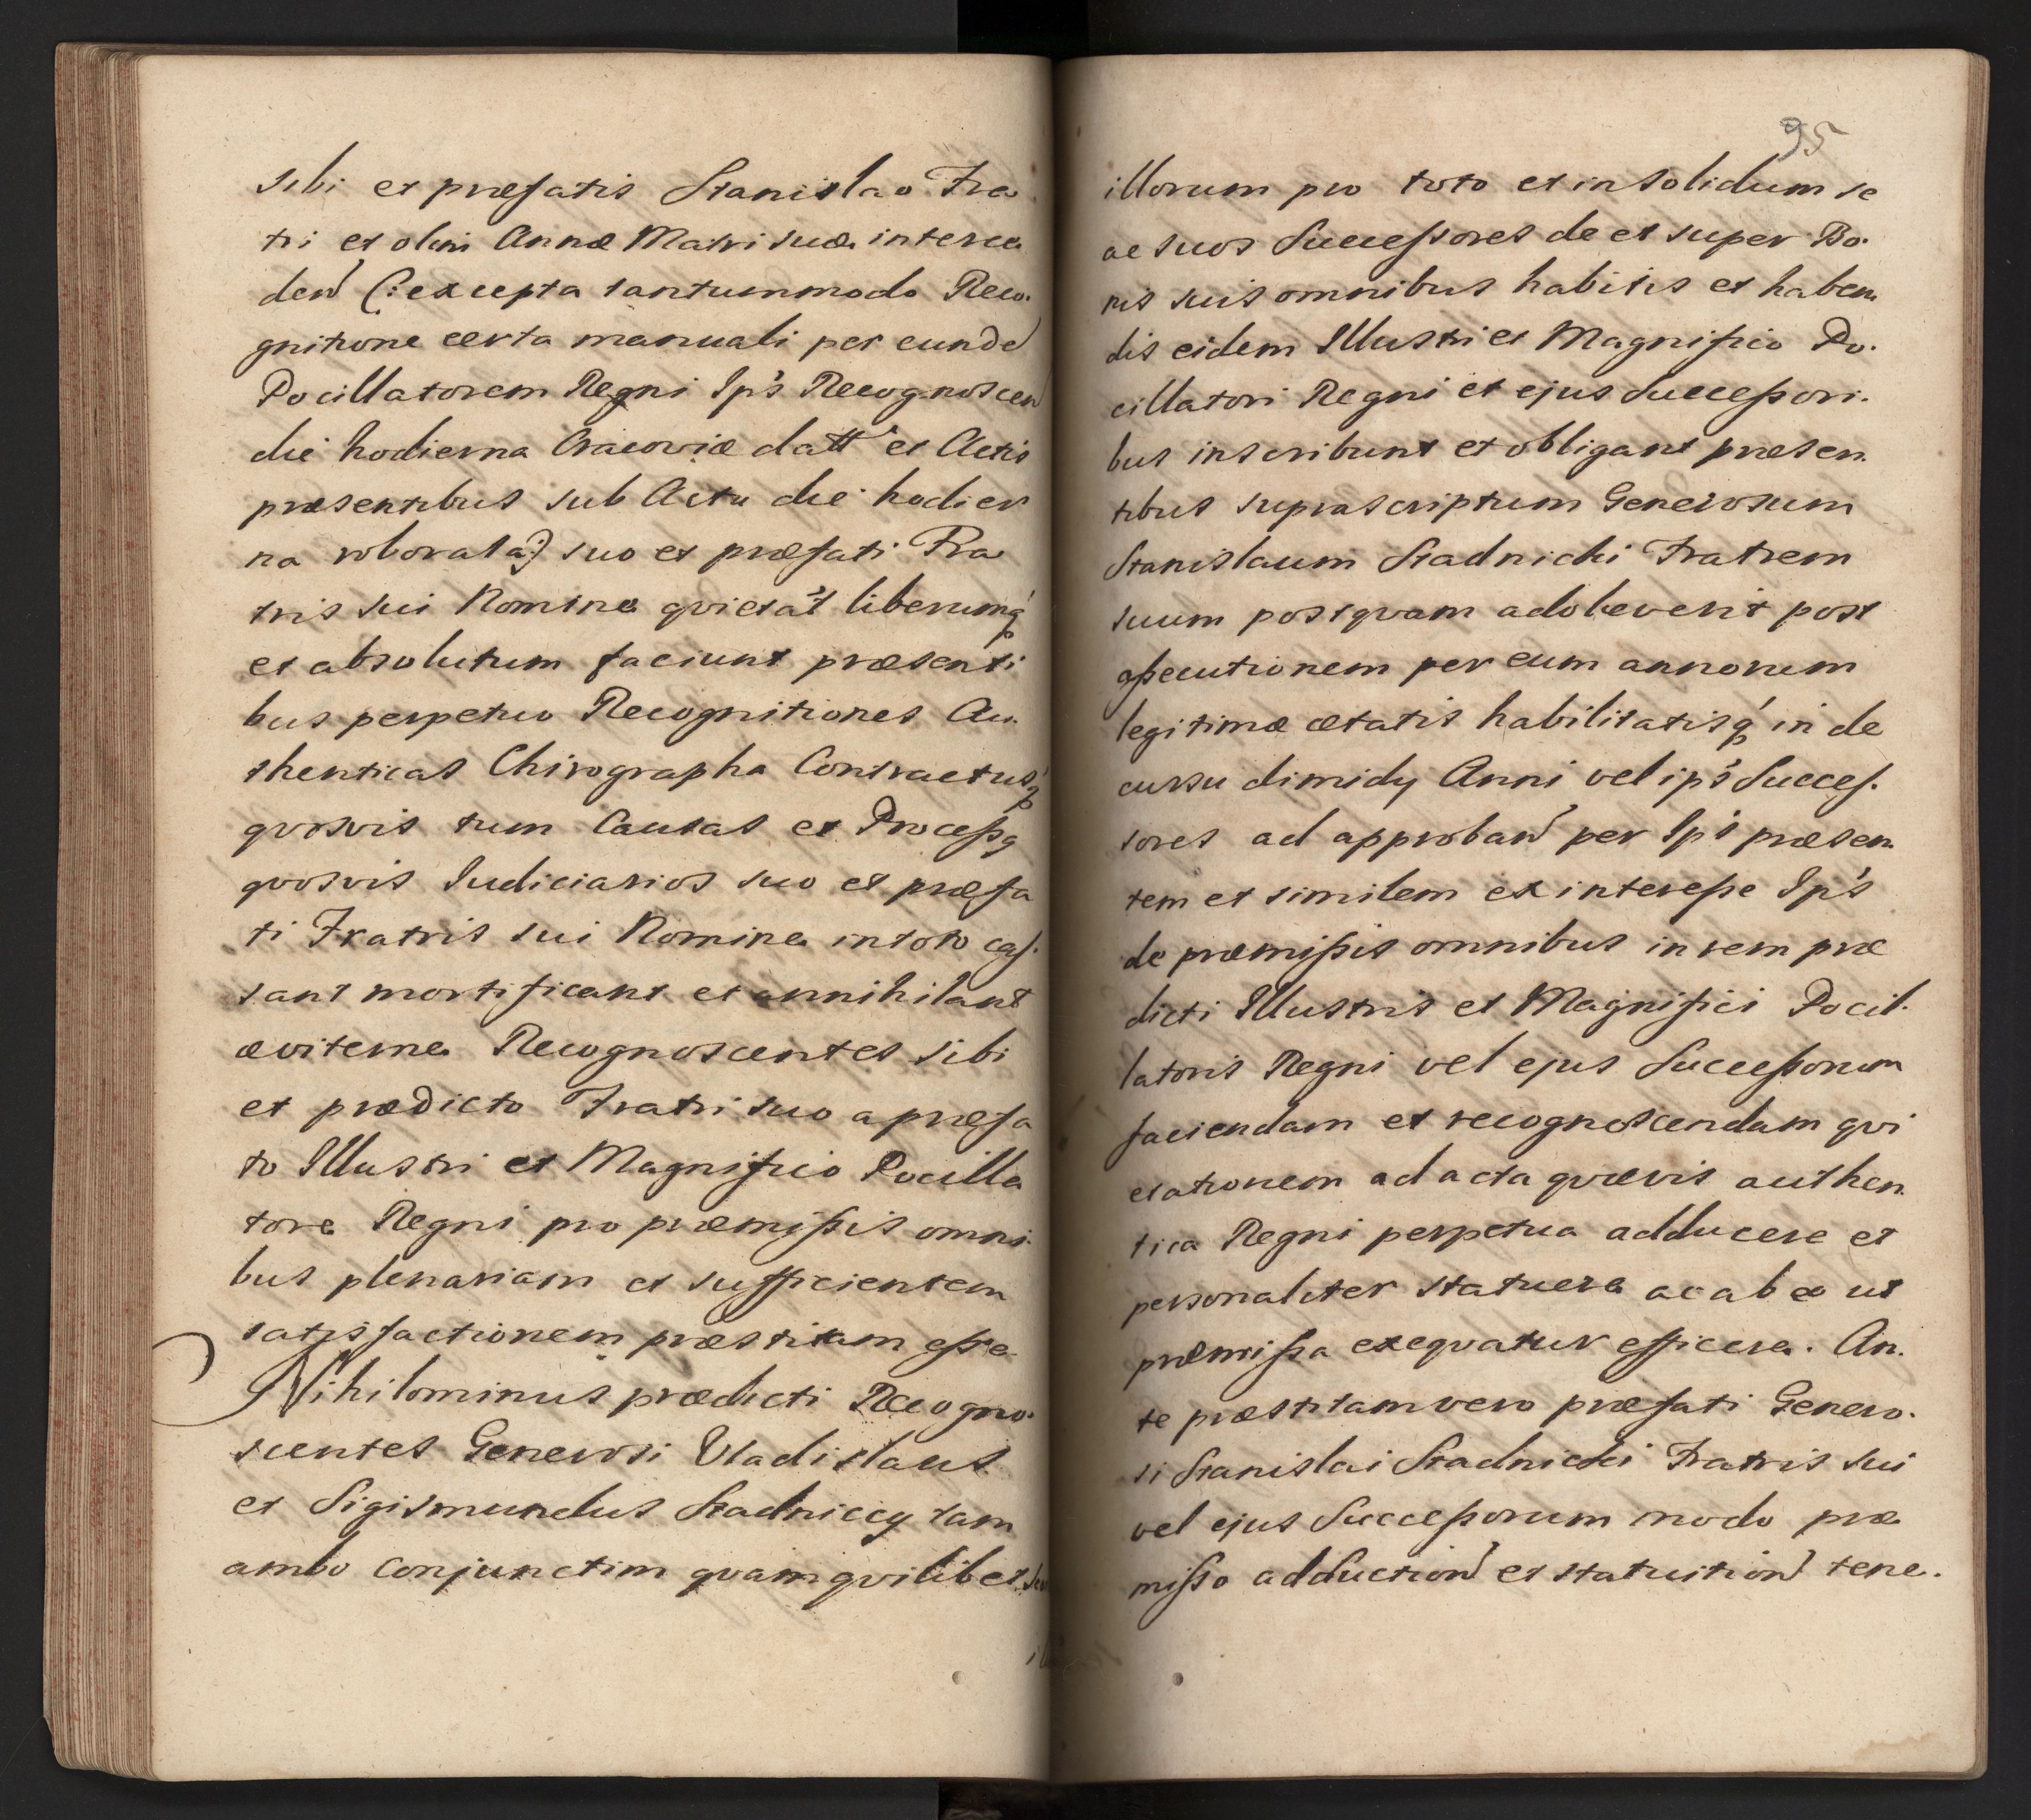 sibi et præfatis Stanislao Fra
tri et olim Annæ Matri suæ interce
den (: excepta tantummodo Reco.
gnitione certa manuali per eunde
Pocillatorem Regni Ip's Recognoscen
die hodierna Cracoviæ datt et Actis
præsentibus sub Actu die hodier
na roborata:) suo et præfati Fra
tris sui Nomine qvietat liberumq
et absolutum faciunt præsenti
bus perpetuo Recognitiones Au.
thenticas Chirographa Contractusq
qvosvis tum Causas et Processq
qvosvis Judiciarios suo et præfa
ti Fratris sui Nomine in toto cas.
sant mortificant et annihilant
æviterne Recognoscentes sibi
et prædicto Fratri suo a præfa
to Illustri et Magnifico Pocilla
tore Regni pro præmissis omni
bus plenariam et sufficientem
satisfactionem præstitam esse
Nihilominus prædicti Recogno.
scentes Generosi Vladislaus
et Sigismundus Stadniccy tam
ambo conjunctim qvam qvilibet
95
illorum pro toto et in solidum se
ac suos Successores de et super Bo.
nis suis omnibus habitis et haben
dis eidem Illustri et Magnifico Po.
cillatori Regni et ejus Successori.
bus inscribunt et obligant præsen
tibus suprascriptum Generosum
Stanislaum Stadnicki Fratrem
suum postqvam adoleverit post
assecutionem per eum annorum
legitimæ ætatis habilitatisq in de
cursu dimidy Anni vel ip's Succes.
sores ad approban per Ip's præsen
tem et similem ex interesse Ip's
de præmissis omnibus in rem præ
dicti Illustris et Magnifici Pocil.
latoris Regni vel ejus Successorum
faciendam et recognoscendam qvi
etationem ad acta qvævis authen
tica Regni perpetua adducere et
personaliter statuere ac ab eo ut
præmissa exeqvatur efficere. An.
te præstitam vero præfati Genero.
si Stanislai Stadnicki Fratris sui
vel ejus Successorum modo præ
misso adduction et statuition tene.